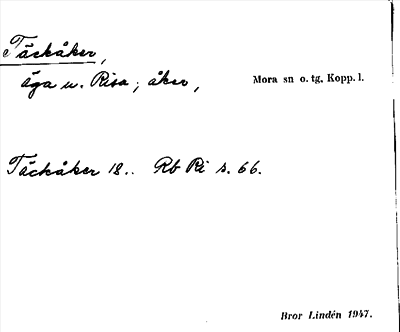 Täckåker,
äga u. Risa; åker,
Mora sn o. tg, Kopp. l.
Täckåker 18.. Rb Ri s. 66.
Bror Lindén 1947.